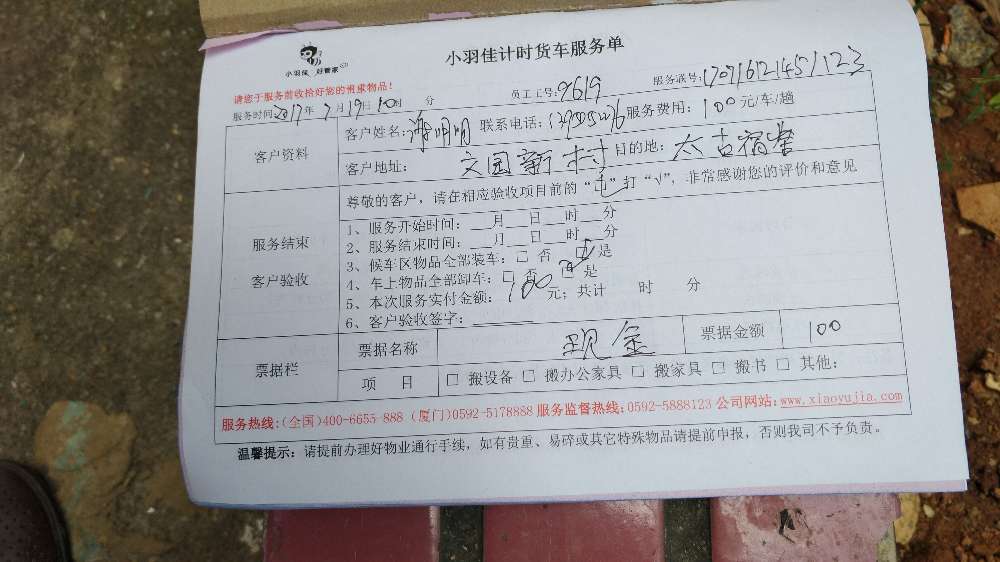 小羽佳 好管家
小羽佳计时货车服务单
请您于服务前收拾好您的贵重物品!
服务时间2017年7月19日10时 分 员工工号:9619 服务账号:170716121451123
客户资料
客户姓名:谢明明 联系电话: 服务费用:100元/车/趟
客户地址: 文园新村 目的地: 太古宿舍
尊敬的客户,请在相应验收项目前的“□”打“√”,非常感谢您的评价和意见
服务结束
客户验收
1、服务开始时间:___月___日___时___分
2、服务结束时间:___月___日___时___分
3、候车区物品全部装车:□ 否 ☑ 是
4、车上物品全部卸车:□ 否 ☑ 是
5、本次服务实付金额:100元;共计 时 分
6、客户验收签字:______
票据栏
票据名称 现金 票据金额 100
项 目 □ 搬设备 □ 搬办公家具 □ 搬家具 □ 搬书 □ 其他:
服务热线:(全国)400-6655-888 (厦门)0592-5178888 服务监督热线:0592-5888123 公司网站:www.xiaoyujia.com
温馨提示:请提前办理好物业通行手续,如有贵重、易碎或其它特殊物品请提前申报,否则我司不予负责。